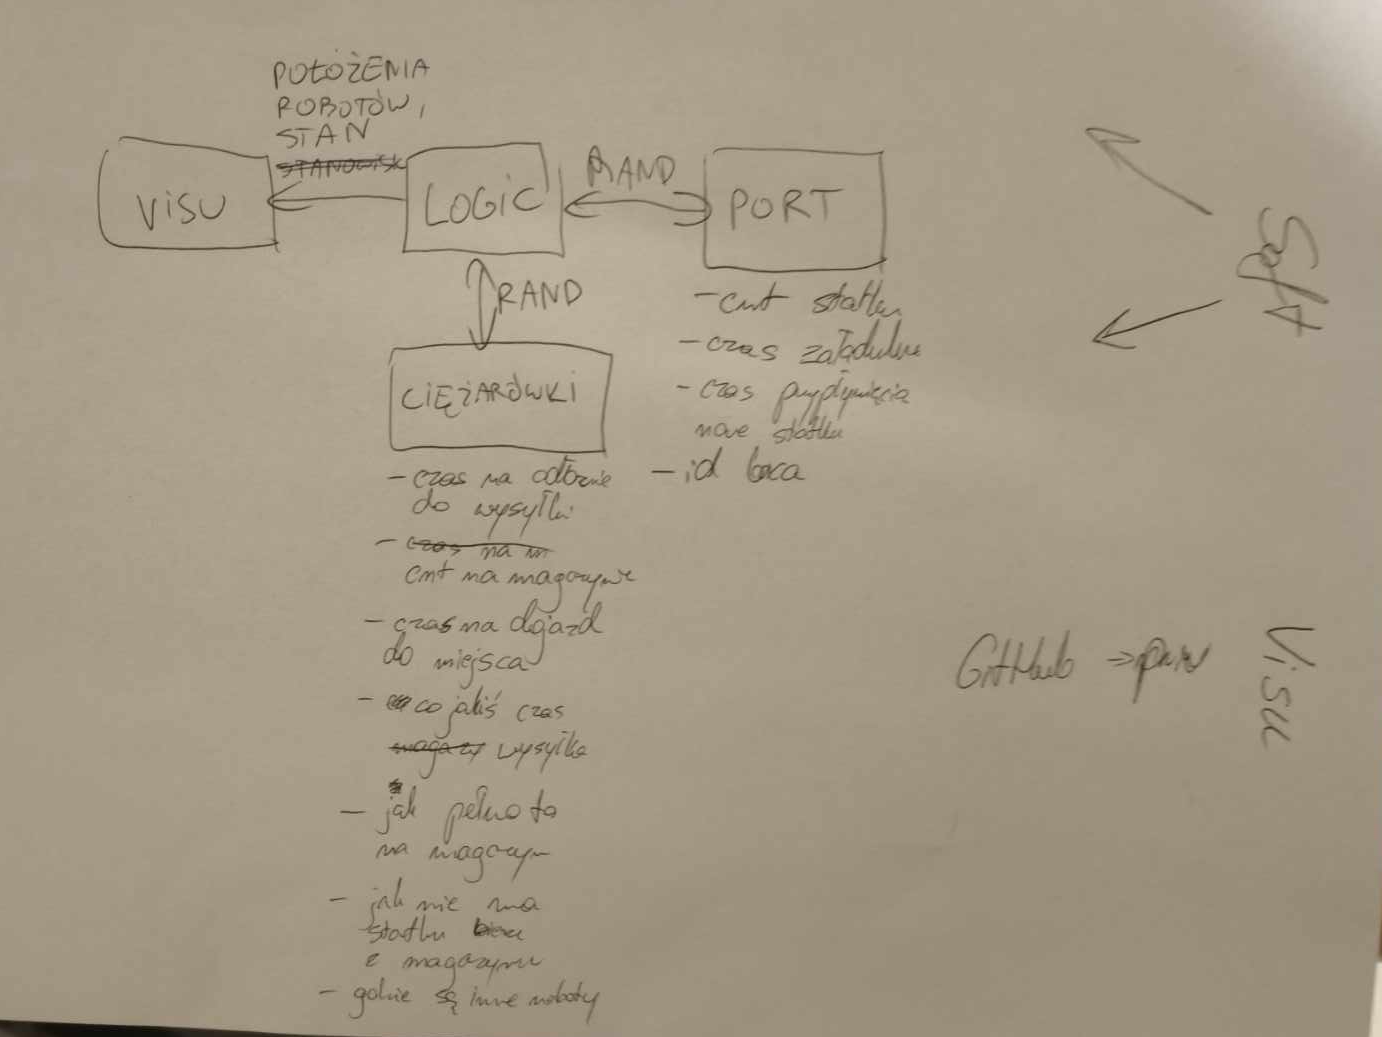 POŁOŻENIA
ROBOTÓW,
STAN
STANOWISK
VISU
LOGIC
RAND
PORT
RAND
CIĘŻARÓWKI
- cnt statku
- czas załadunku
- czas przypłynięcia
nowe statku
- id boxa
- czas na odbranie
do wysyłki
- czas na m
cnt na magazynie
- czas na dojazd
do miejsca
- co jakiś czas
magazy wysyłka
- jak pełno to
na magazyn
- jak nie ma
statku
z magazynu
- gdzie są inne roboty
Soft
GitHub => priv
Visu